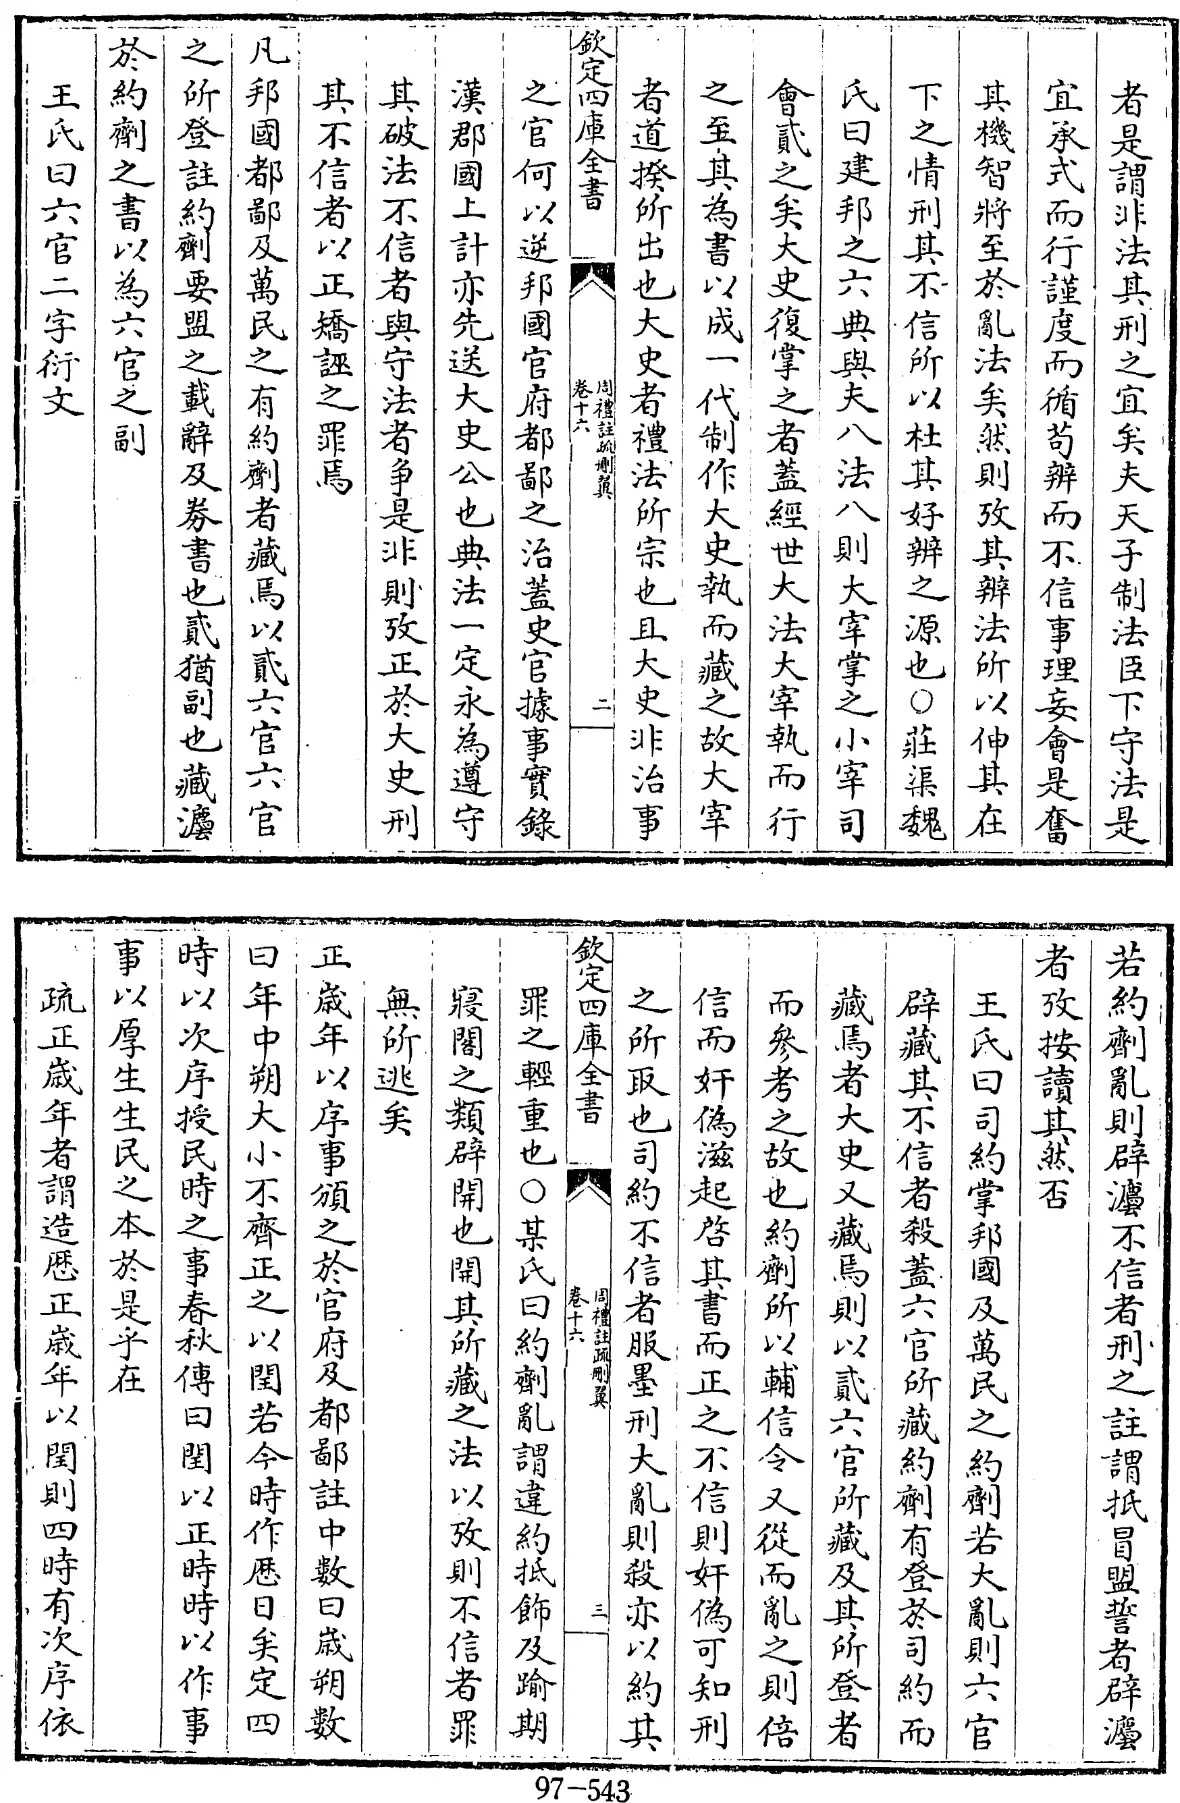 者是謂非法其刑之宜矣夫天子制法臣下守法是
宜承式而行謹度而循苟辨而不信事理妄會是奮
其機智將至於亂法矣然則攷其辨法所以伸其在
下之情刑其不信所以杜其好辨之源也○莊渠魏
氏曰建邦之六典與夫八法八則大宰掌之小宰司
會貳之矣大史復掌之者蓋經世大法大宰執而行
之至其為書以成一代制作大史執而藏之故大宰
者道揆所出也大史者禮法所宗也且大史非治事
欽定四庫全書
周禮註疏刪翼
卷十六
二
之官何以逆邦國官府都鄙之治蓋史官據事實錄
漢郡國上計亦先送大史公也典法一定永為遵守
其破法不信者與守法者争是非則攷正於大史刑
其不信者以正矯誣之罪焉
凡邦國都鄙及萬民之有約劑者藏焉以貳六官六官
之所登註約劑要盟之載辭及券書也貳猶副也藏灋
於約劑之書以為六官之副
王氏曰六官二字衍文
若約劑亂則辟灋不信者刑之註謂抵冒盟誓者辟灋
者攷按讀其然否
王氏曰司約掌邦國及萬民之約劑若大亂則六官
辟藏其不信者殺蓋六官所藏約劑有登於司約而
藏焉者大史又藏焉則以貳六官所藏及其所登者
而參考之故也約劑所以輔信令又從而亂之則倍
信而奸偽滋起啓其書而正之不信則奸偽可知刑
之所取也司約不信者服墨刑大亂則殺亦以約其
欽定四庫全書
周禮註疏刪翼
卷十六
三
罪之輕重也○某氏曰約劑亂謂違約抵飾及踰期
寢閣之類辟開也開其所藏之法以攷則不信者罪
無所逃矣
正歲年以序事頒之於官府及都鄙註中數曰歲朔數
曰年中朔大小不齊正之以閏若今時作厯日矣定四
時以次序授民時之事春秋傳曰閏以正時時以作事
事以厚生生民之本於是乎在
疏正歲年者謂造厯正歲年以閏則四時有次序依
97-543